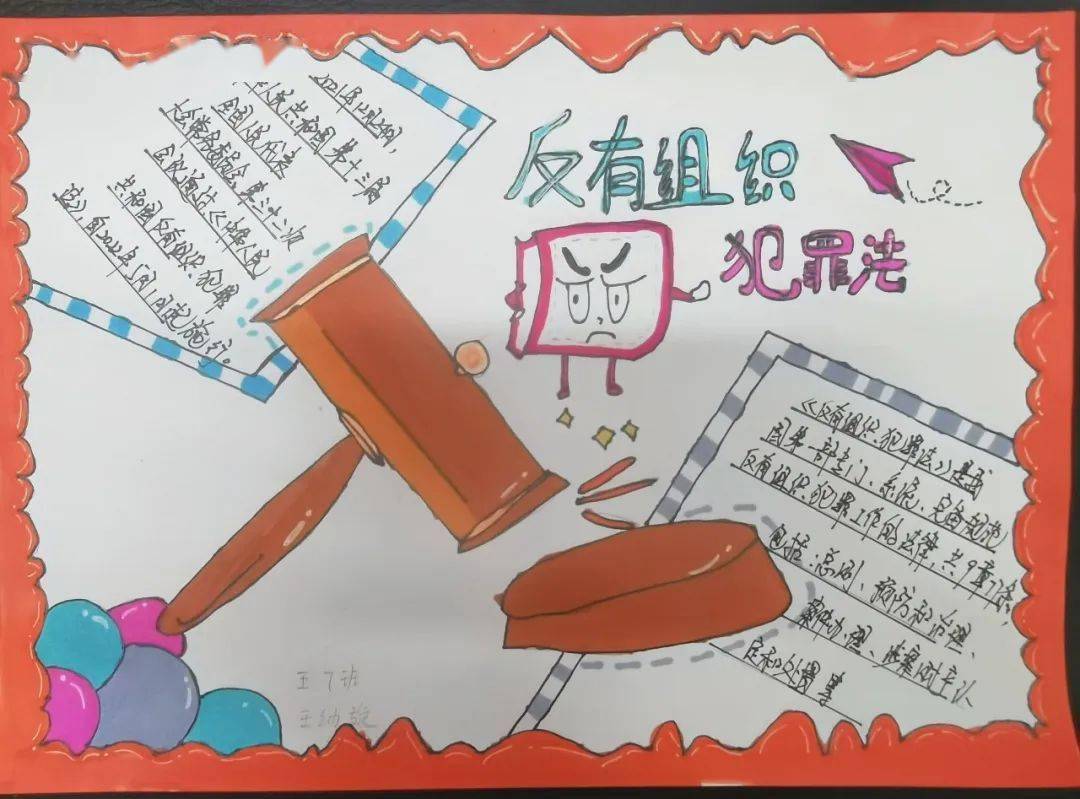 反有组织
犯罪法
2021年12月24日,
人民共和国第十三届
全国人民代表
大会常务委员会第三十二次
会议通过《中华人民
共和国反有组织犯罪
法》,自2022年5月1日起施行。
《反有组织犯罪法》是我
国第一部专门、系统、完备规范
反有组织犯罪工作的法律,共9章77条,
包括:总则、预防和治理、
案件办理、涉案财产认
定和处置等
王